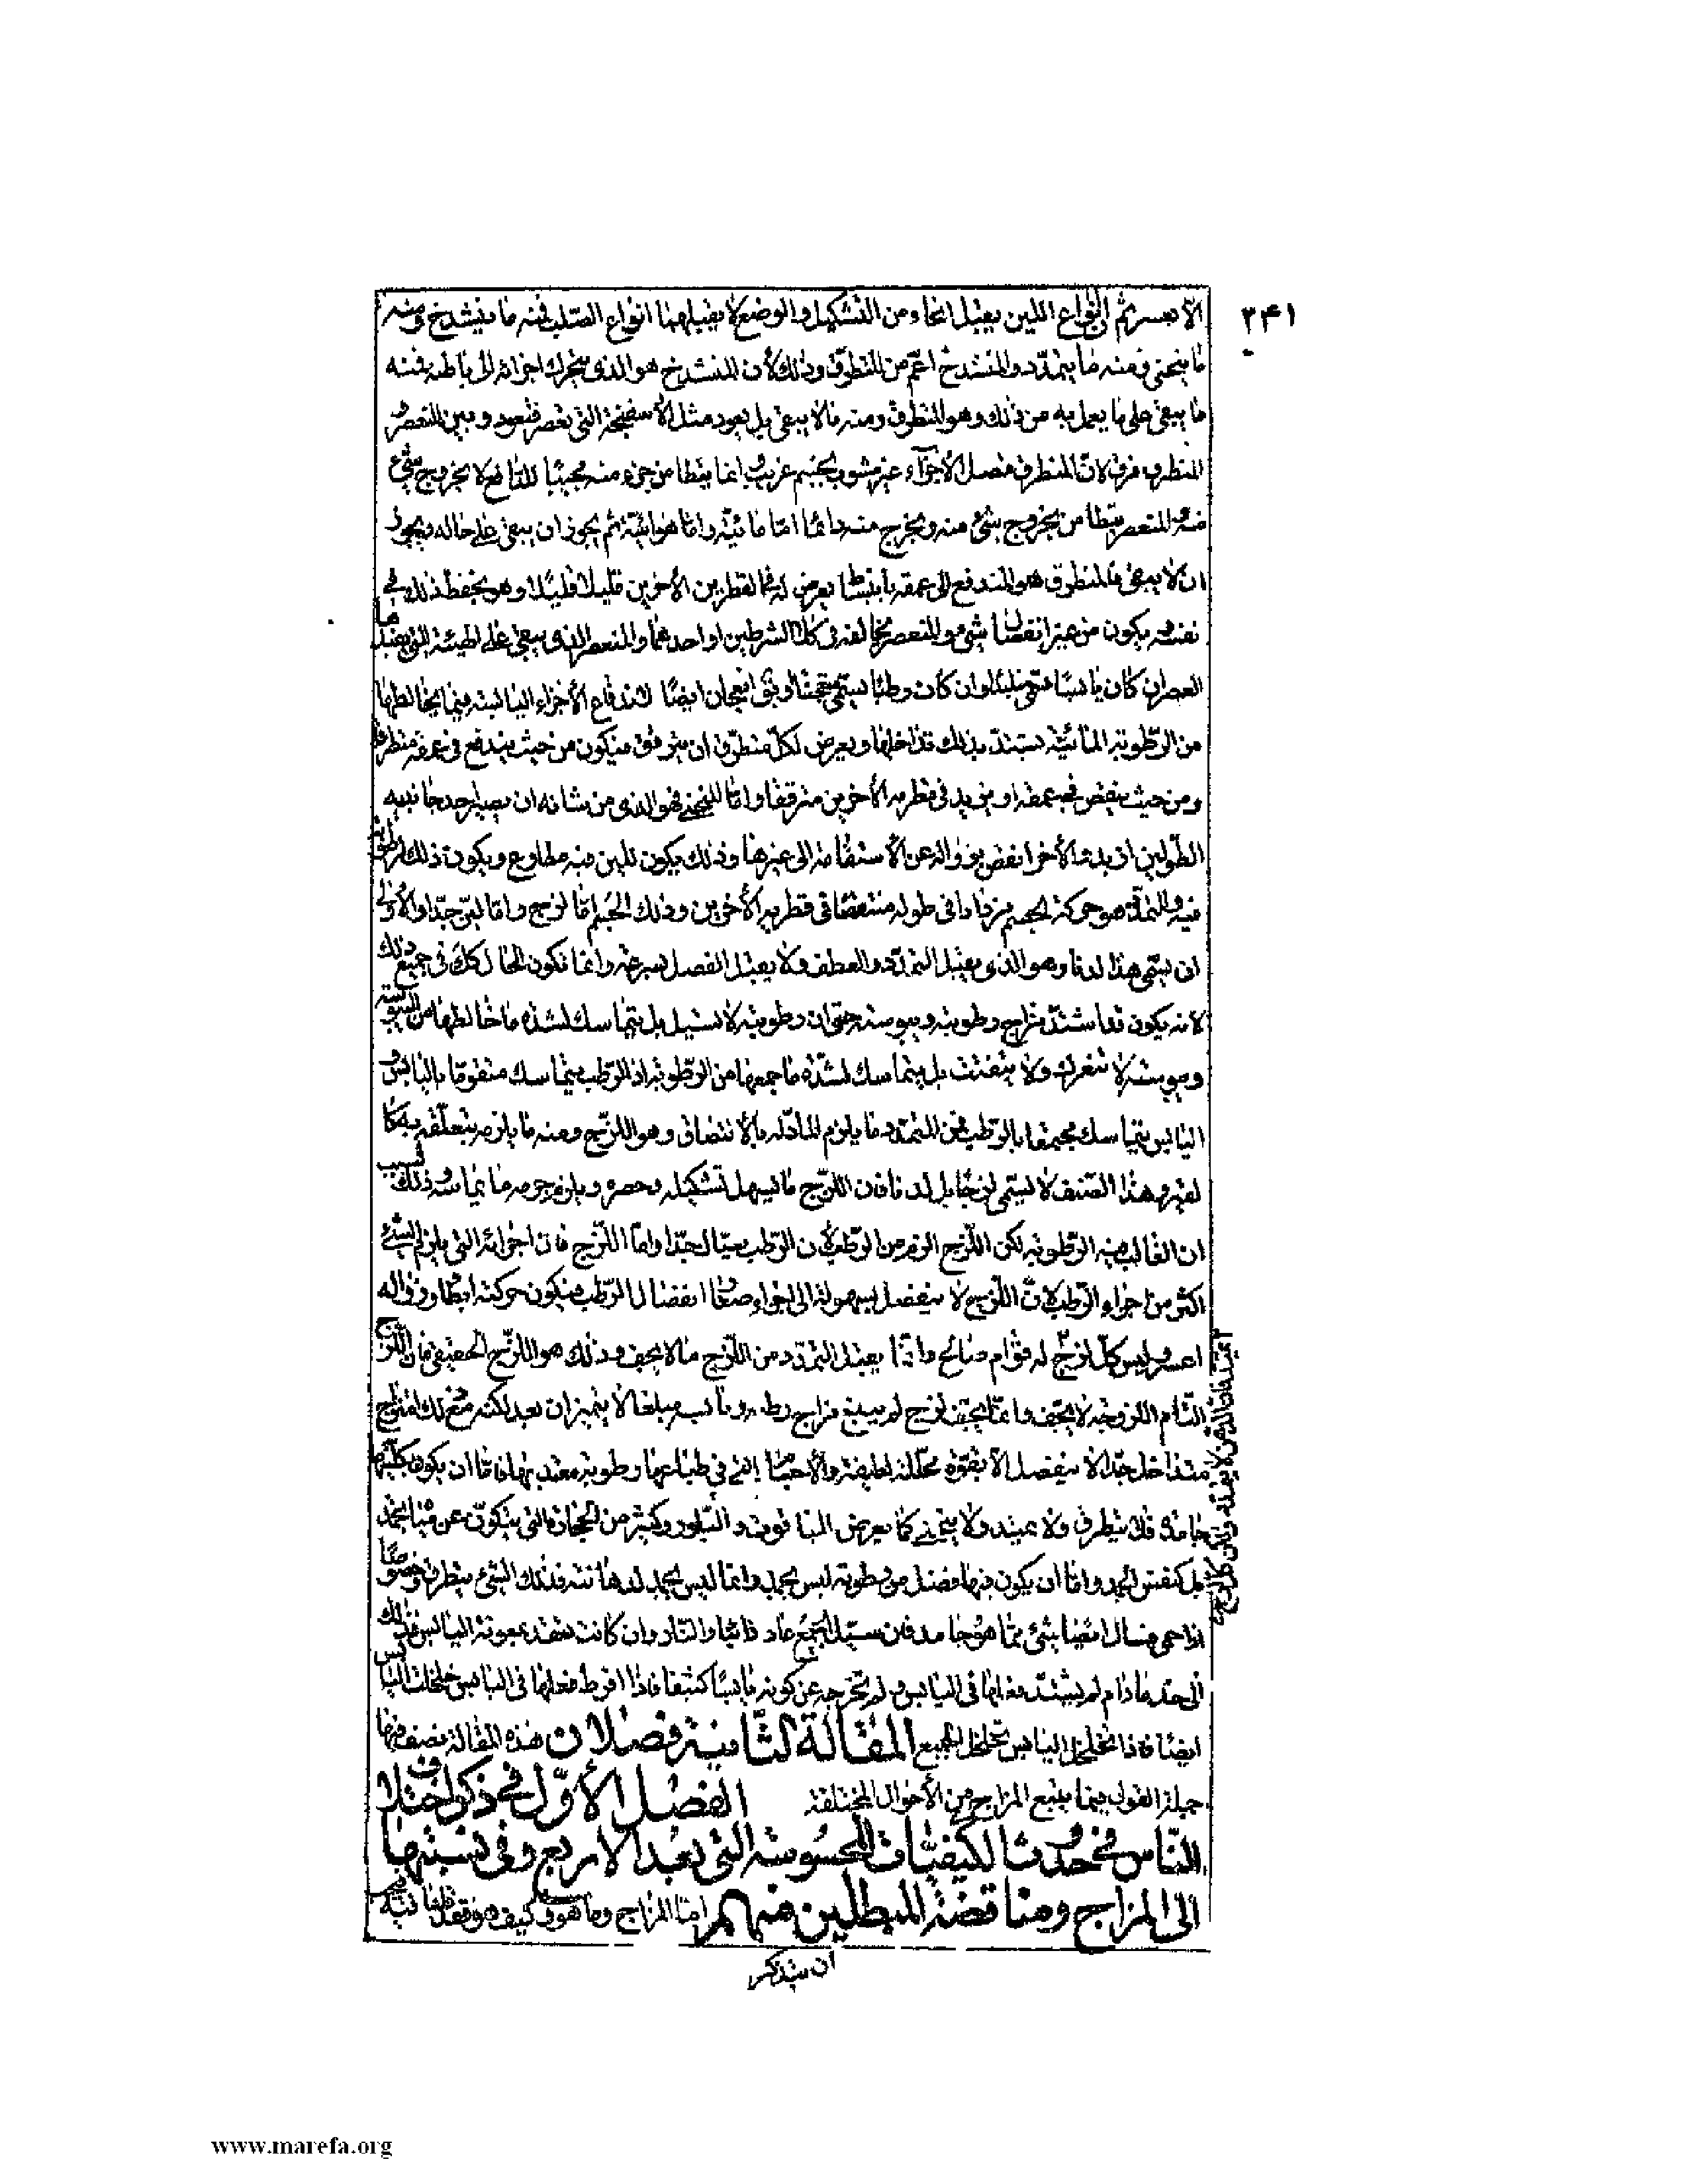 ۲۴۱
الا بعسر ثم انواع اللين يقبل انحاء من التشكيل والوضع لا يقبلها انواع الصلب فمنه ما ينشدخ ومنه
ما ينحني ومنه ما يتمدد والمنشدخ اعم من المتطرق وذلك لأن المنشدخ هو الذي يتحرك اجزائه الى باطنه فمنه
ما يبقى على ما يعمل به من ذلك وهو المتطرق ومنه ما لا يبقى بل يعود مثل الأسفنجة التي تعصر فتعود وبين المنعصر و
المتطرق فرق لان المتطرق متصل الأجزاء غير مشوب بجسم غريب وانما يتطامن جزء منه مجيبا للدافع لا بخروج شيء
منه والمنعصر يتطامن بخروج شيء منه ويخرج منه دائما اما مائية واما هوائية ثم يجوز ان يبقى على حاله ويجوز
ان لا يبقى فالمتطرق هو المندفع الى عمقه بانبساط يعرض له في القطرين الأخرين قليلا قليلا وهو يحفظ ذلك في
نفسه ويكون من غير انفصال شيء والمنعصر مخالفه في كلا الشرطين او احدهما والمنعصر الذي يبقى على الهيئة التي يفيدها
العصر ان كان يابسا سمي متلبدا وان كان رطبا يسمى منعجنا وقد ينعجان ايضا لاندفاع الأجزاء اليابسة فيما يخالطها
من الرطوبة المائية يستند بذلك تداخلها ويعرض لكل متطرق ان يترقق فيكون من حيث يندفع في عمقه متطرقا
ومن حيث ينقص في عمقه او يزيد في قطريه الأخرين مترققا واما المنحني فهو الذي من شانه ان يصير احد جانبيه
الطولين ازيد والأخر انقص بزواله عن الأستقامة الى غيرها وذلك يكون للين فيه مطاوع ويكون ذلك لرطوبة
فيه والتمدد هو حركة الجسم مزدادا في طوله منتقصا في قطريه الأخرين وذلك الجسم اما لزج واما لين جدا والأولى
ان يسمى هذا لدنا وهو الذي يقبل التمدد والعطف ولا يقبل الفصل بسرعة وانما تكون الحال كك في جميع ذلك
لانه يكون قد اشتد مزاج رطوبته ويبوسته حتى ان رطوبته لا تسيل بل يتماسك لشدة ما خالطها من اليبوسة
ويبوسته لا تتفرك ولا يتفتت بل يتماسك لشدة ما جمعها من الرطوبة اذ الرطب يتماسك متقوما باليابس و
اليابس يتماسك مجتمعا بالرطب فمن المتمدد ما يلزم المادّ له بالالتصاق وهو اللزج ومنه ما يلزمه بتعلقه به كا
لقير وهذا الصنف لا يسمى لزجا بل لدنا فان اللزج ما يسهل تشكيله وحصره ويلزم جرمه ما يماسه وذلك بسبب
ان الغالب فيه الرطوبة لكن اللزج الزم من الرطب لأن الرطب سيال جدا واما اللزج فان اجزائه التي يلزم الشيء
اكثر من اجزاء الرطب لان اللزج لا ينفصل بسهولة الى اجزاء صغار انفصال الرطب فيكون حركته ابطأ وزواله
اعسر وليس كل لزج له قوام صالح واذا يقبل التمدد من اللزج ما لا يجف وذلك هو اللزج الحقيقي فان اللزج
التام اللزوجة لا يجف وانما يجف لزج لم يبلغ مزاج رطبه ويابسه مبلغا لا يتميزان بعد لكنه مع ذلك امتزاج
متداخل جدا لا ينفصل الا بقوة محللة لطيفة والأجسام التي في طباعها رطوبة معتد بها فاما ان يكون بكليتها
جامدة فلا يتطرق ولا يمتد ولا ينحني كما يعرض الياقوت والبلور وكثير من الحجارة التي يتكون عن مياه تجمد
بل كنفس الجمد واما ان يكون فيها فضل من رطوبة ليس بجمد وانما ليس يجمد لدهانته فذلك الشيء يتطرق وخصوصا
اذا حمي فسال ايضا شيء مما هو جامد فان سيل الجميع عاد ذائبا والنار وان كانت تنفذ بمعونة اليابس فذلك
الى حد ما دام لم يشتد فعلها في اليابس ولم تخرجه عن كونه يابسا كثيفا فاذا افرط فعلها في اليابس خلخلت اليابس
ايضا فاذا تخلخل اليابس تخلخل الجميع المقالة الثانية فصلان هذه المقالة نصف فيها
جملة القول فيما يتبع المزاج من الأحوال المختلفة الفصل الأول في ذكر اختلاف
الناس في حدوث الكيفيات المحسوسة التي بعد الاربع وفي نسبتها
الى المزاج ومناقضة المبطلين منهم اما المزاج وما هو وكيف هو فقد
ان يتذكر
www.marefa.org